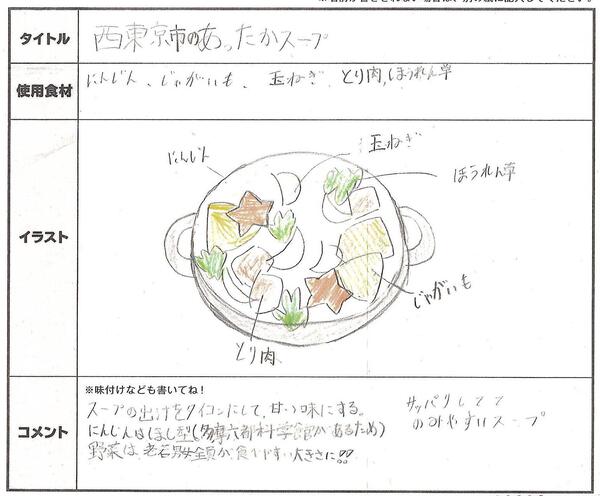 タイトル
西東京市のあったかスープ
使用食材
にんじん、じゃがいも、玉ねぎ、とり肉、ほうれん草
イラスト
にんじん
玉ねぎ
ほうれん草
じゃがいも
とり肉
コメント
※味付けなども書いてね!
スープの出汁をダイコンにして、甘い味にする。
にんじんはほし型(多摩六都科学館があるため)
野菜は、老若男女全員が食べやすい大きさに!!
サッパリしてて
のみやすいスープ